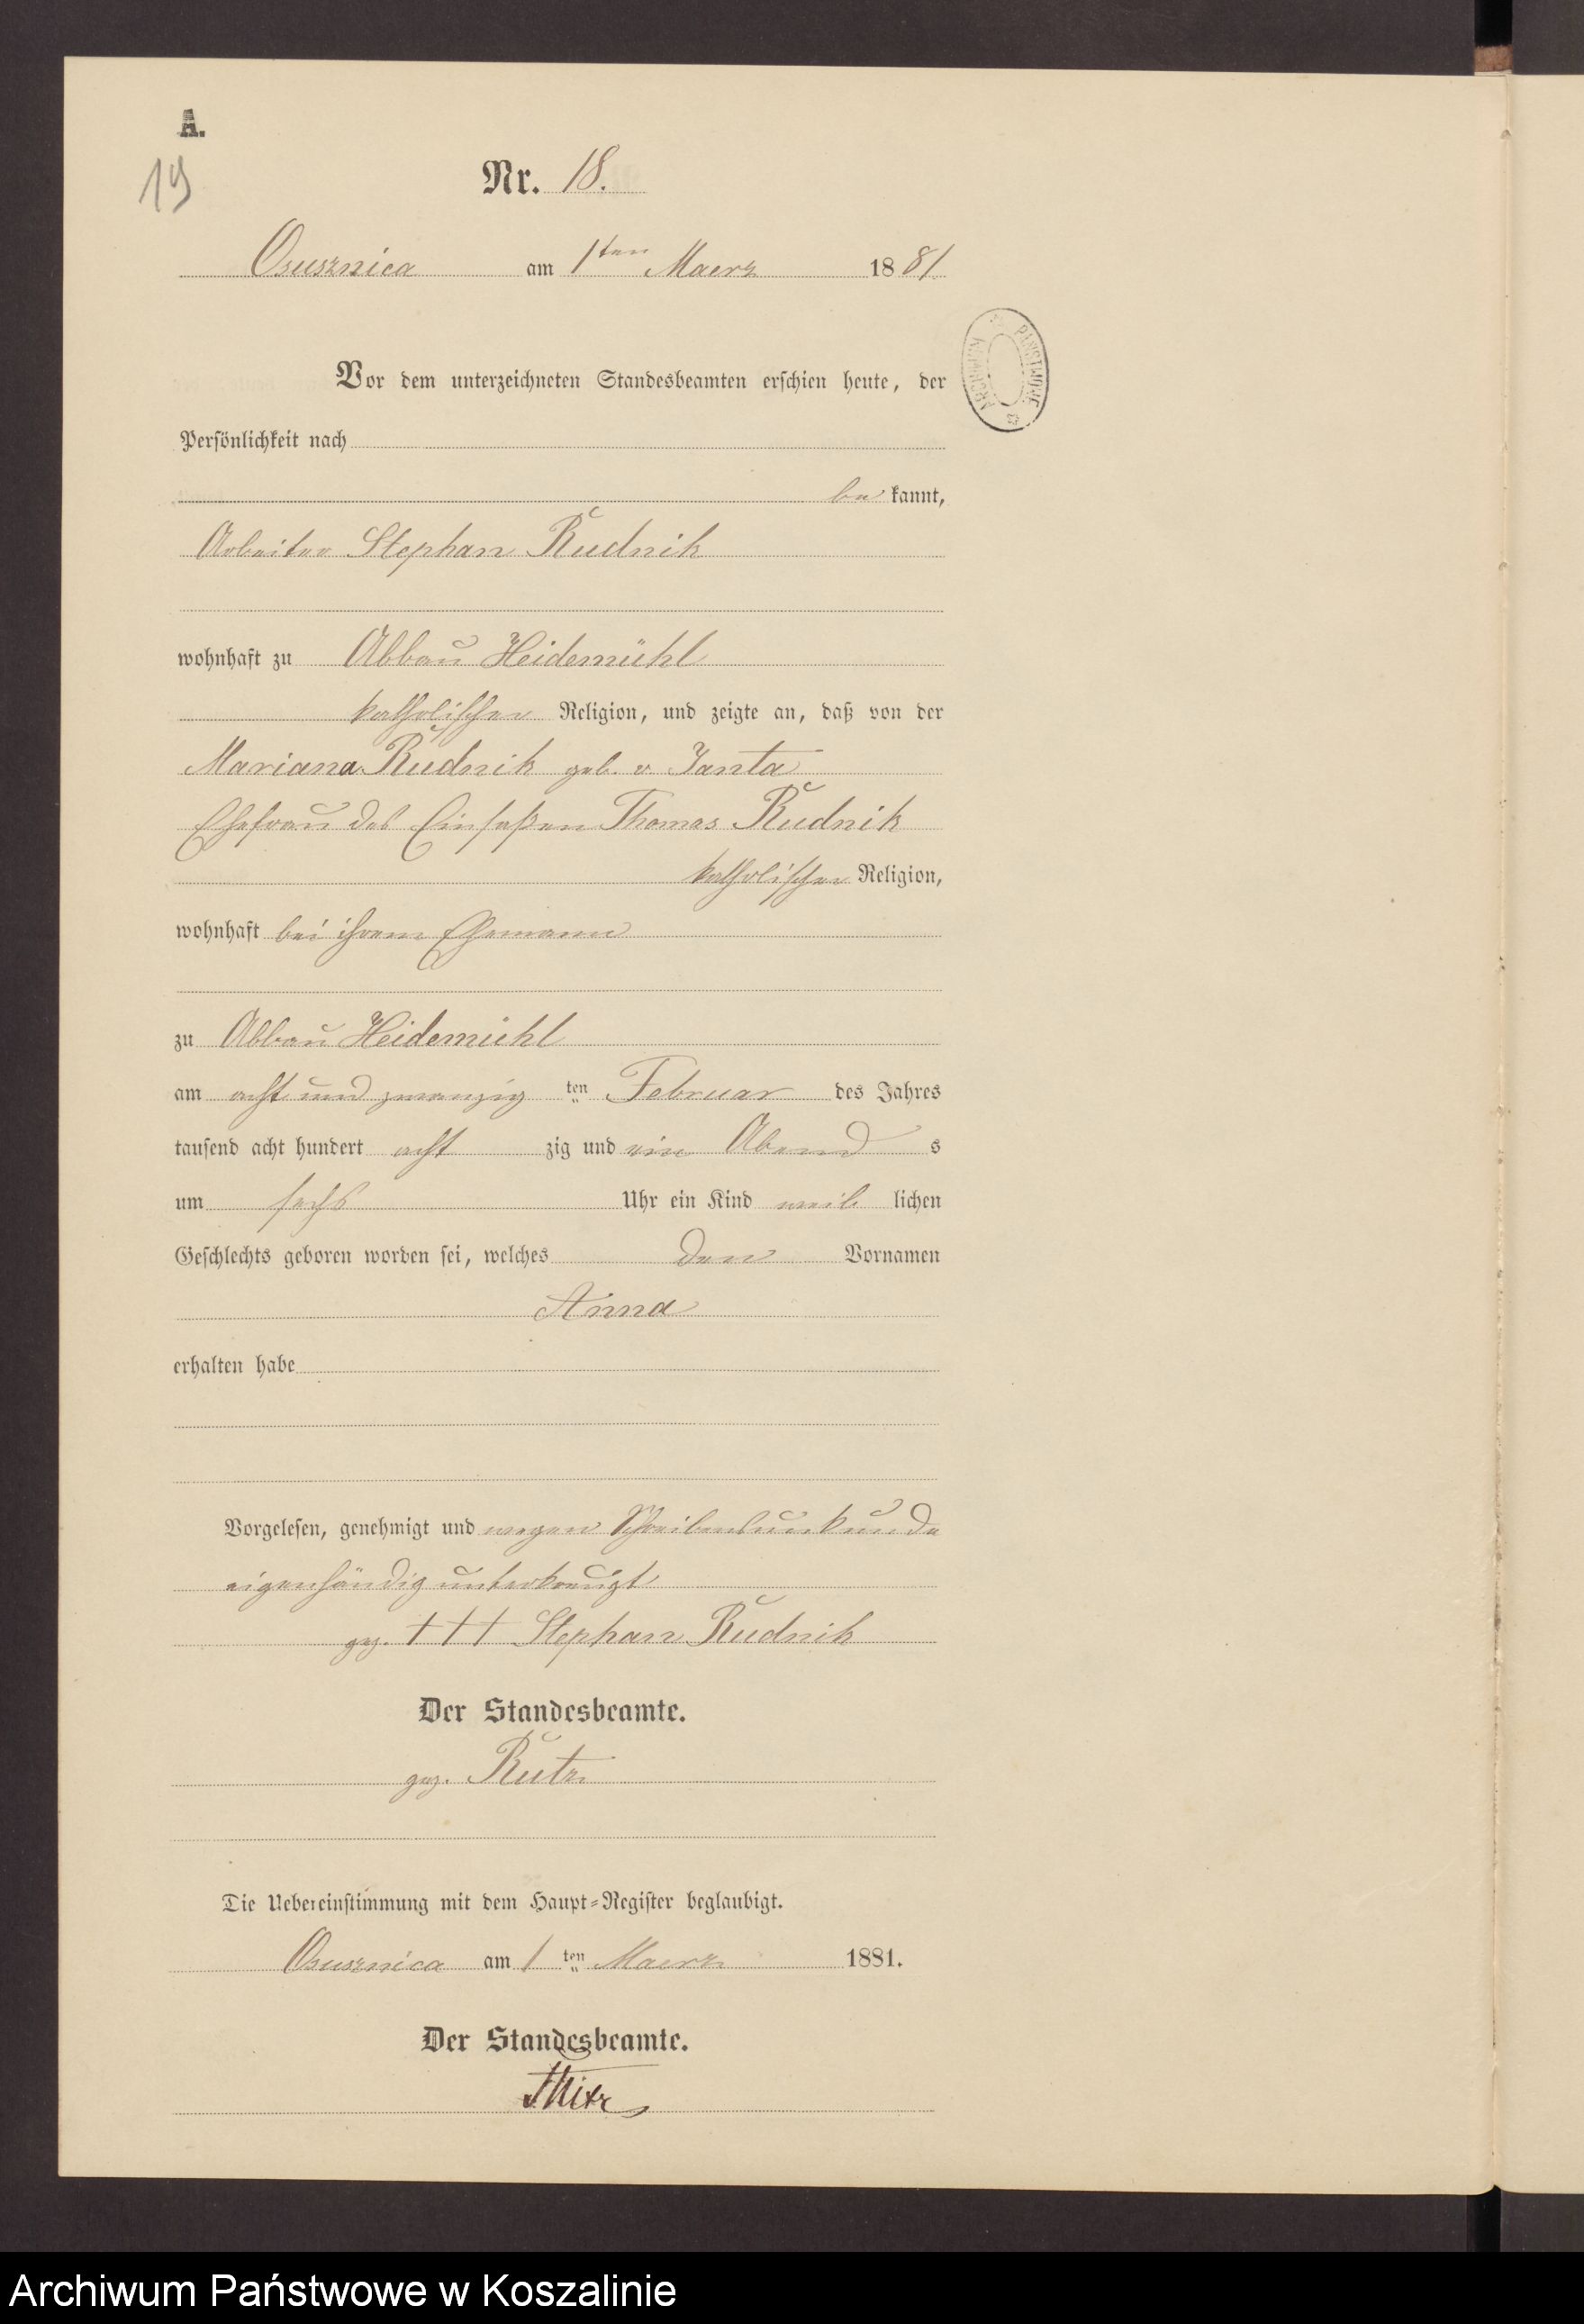 A.
19
Nr. 18.
Osusznica am 1ten Maerz 1881
Vor dem unterzeichneten Standesbeamten erschien heute, der
Persönlichkeit nach
be kannt,
Arbeiter Stephan Rudnik
wohnhaft zu Abbau Heidemühl
katholischer Religion, und zeigte an, daß von der
Mariana Rudnik geb. v Janta
Ehefrau des Einsaßen Thomas Rudnik
katholischer Religion,
wohnhaft bei ihrem Ehemann
zu Abbau Heidemühl
am acht und zwanzig ten Februar des Jahres
tausend acht hundert acht zig und ein Abend s
um sechs Uhr ein Kind weib lichen
Geschlechts geboren worden sei, welches den Vornamen
Anna
erhalten habe
Vorgelesen, genehmigt und wegen Schreibensunkunde
eigenhändig unterkreuzt
gez. +++ Stephan Rudnik
Der Standesbeamte.
gez. Rutz
Die Uebereinstimmung mit dem Haupt-Register beglaubigt.
Osusznica am 1 ten Maerz 1881.
Der Standesbeamte.
ARCHIWUM PAŃSTWOWE
Archiwum Państwowe w Koszalinie